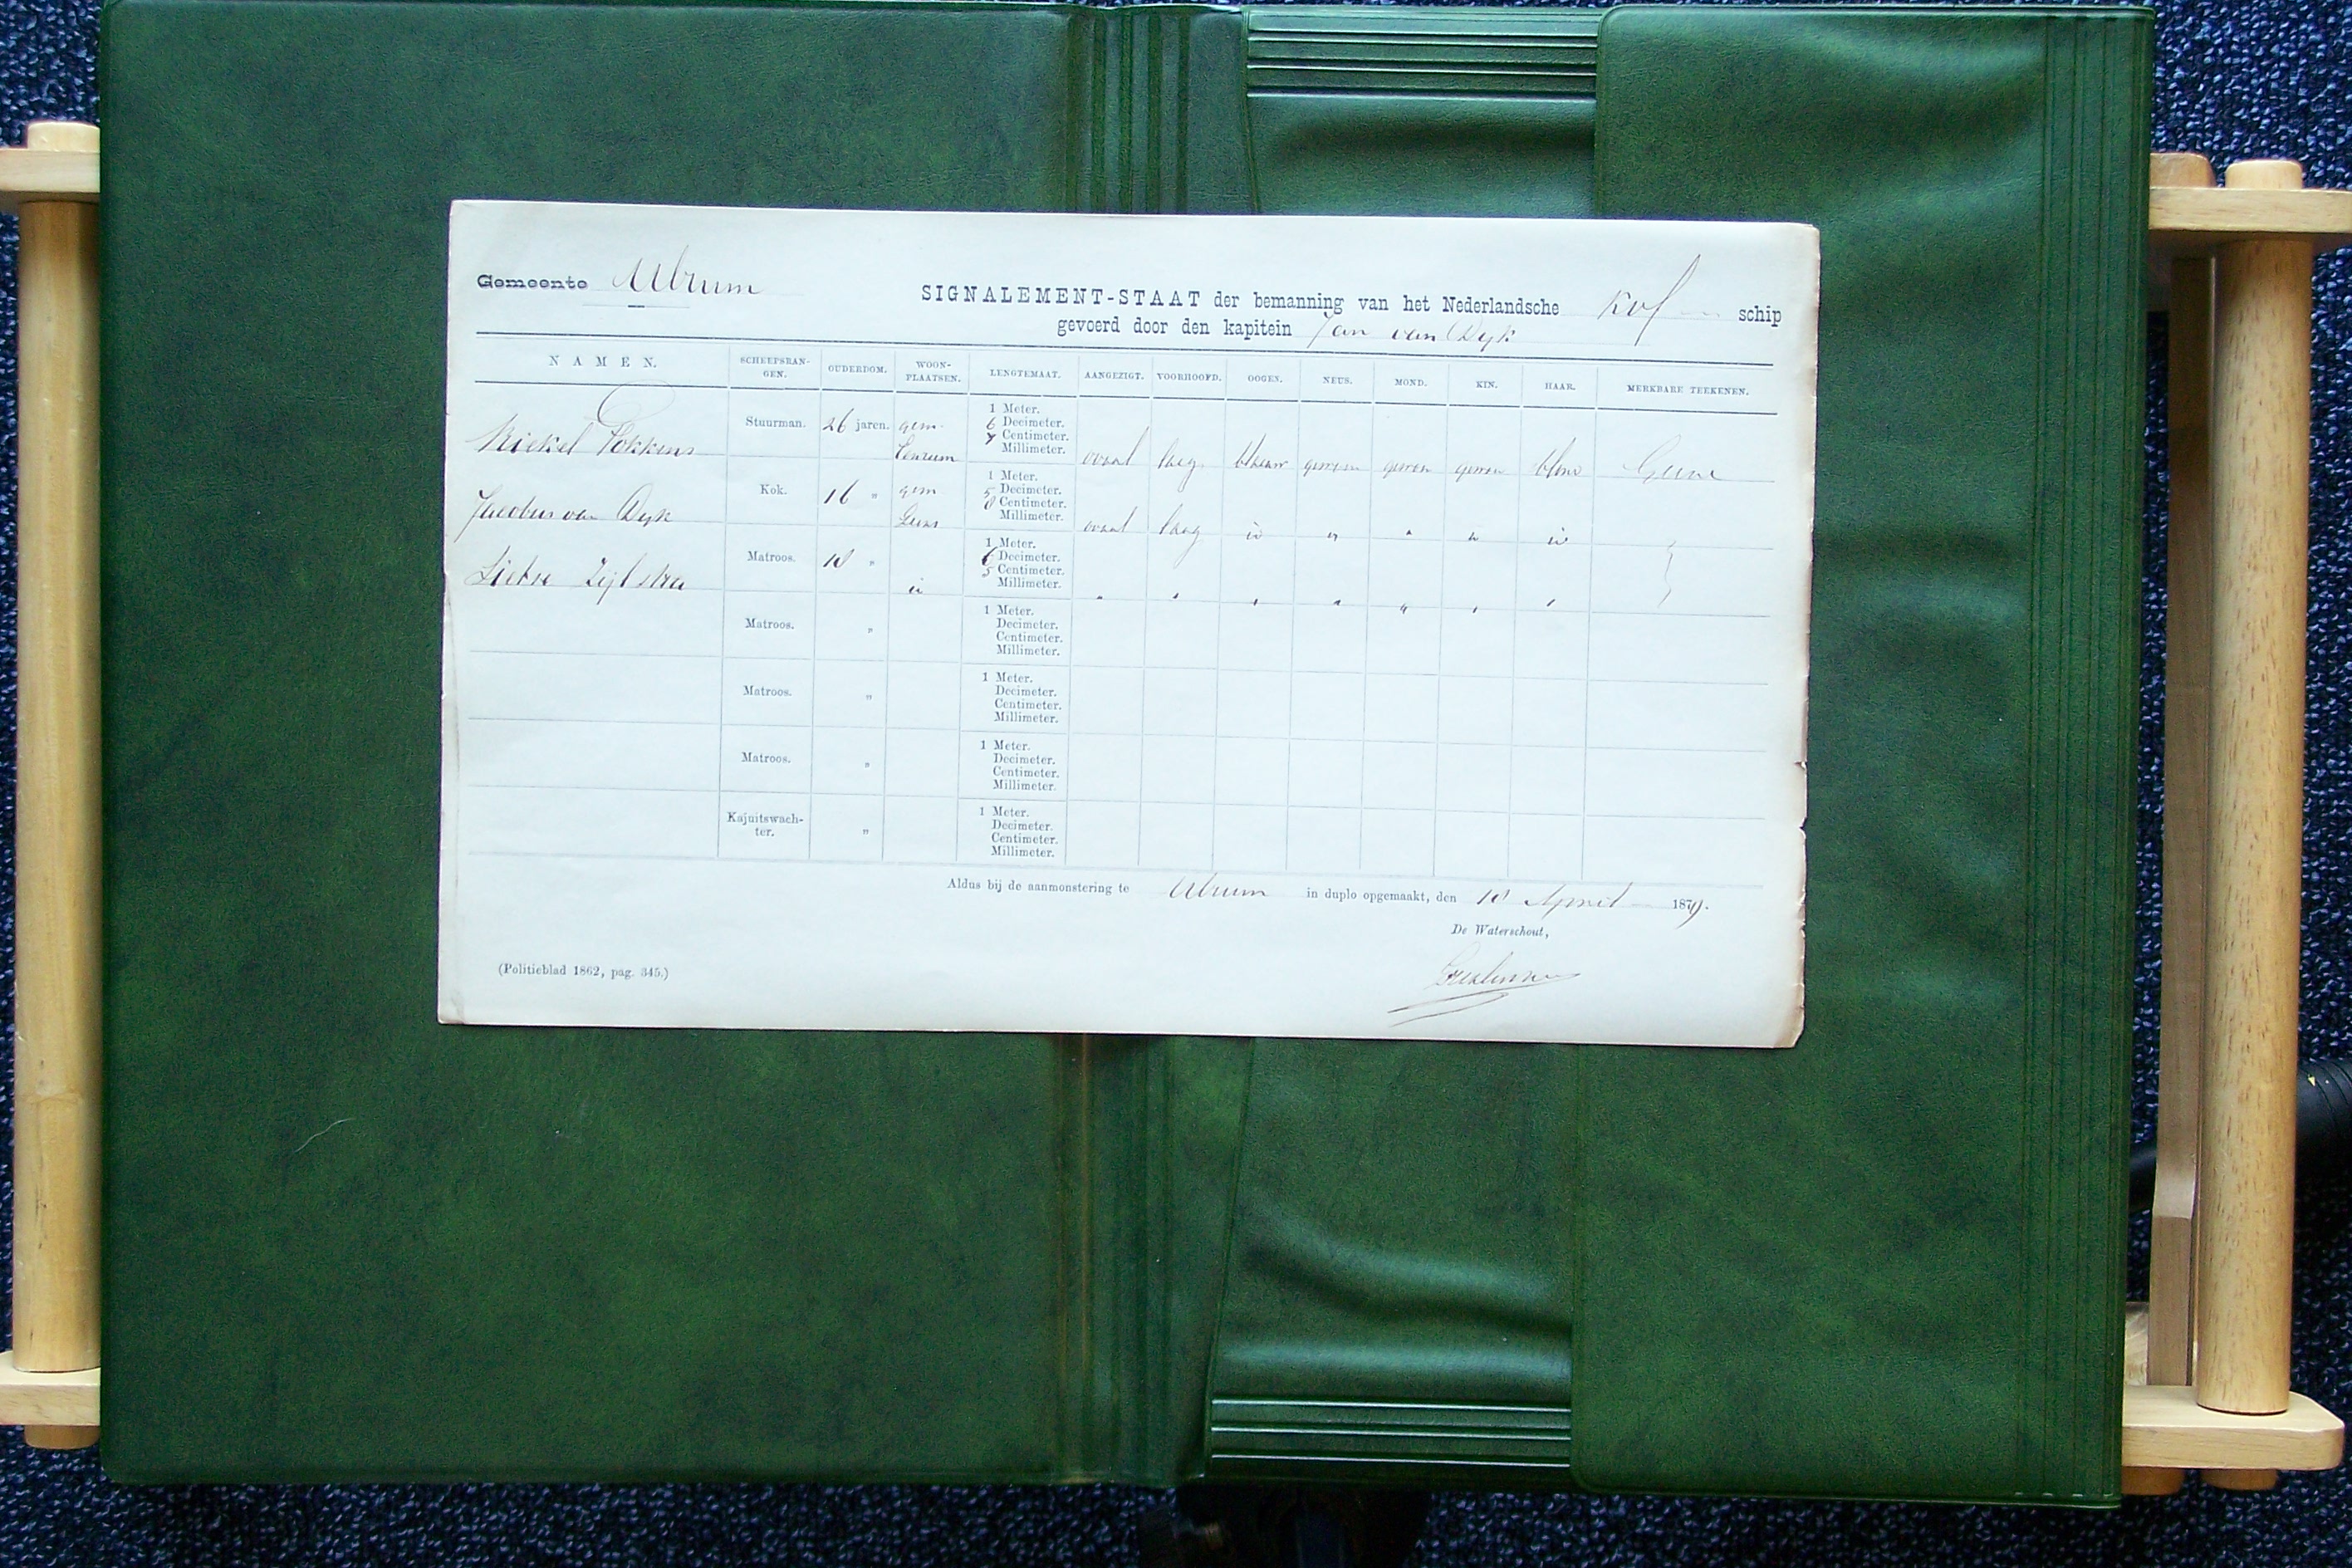 Gemeente Ulrum
SIGNALEMENT-STAAT der bemanning van het Nederlandsche Kof schip
gevoerd door den kapitein Jan van Dyk
NAMEN. SCHEEPSRAN-GEN. OUDERDOM. WOON-PLAATSEN. LENGTEMAAT. AANGEZIGT. VOORHOOFD. OOGEN. NEUS. MOND. KIN. HAAR. MERKBARE TEEKENEN.
Riekel Fokkens Stuurman. 26 jaren. gem. Leurum 1 Meter. 6 Decimeter. 7 Centimeter. Millimeter. ovaal laag blaauw gewoon gewoon gewoon blond Geene
Jacobus van Dyk Kok. 16 " gem Leens 1 Meter. 5 Decimeter. 8 Centimeter. Millimeter. ovaal laag id " " " id
Sietse Zijlstra Matroos. 18 " id 1 Meter. 6 Decimeter. 5 Centimeter. Millimeter. " " " " " " "
Matroos. " 1 Meter. Decimeter. Centimeter. Millimeter.
Matroos. " 1 Meter. Decimeter. Centimeter. Millimeter.
Matroos. " 1 Meter. Decimeter. Centimeter. Millimeter.
Kajuitswach-ter. " 1 Meter. Decimeter. Centimeter. Millimeter.
Aldus bij de aanmonstering te Ulrum in duplo opgemaakt, den 18 April 1879.
De Waterschout,
(Politieblad 1862, pag. 345.)